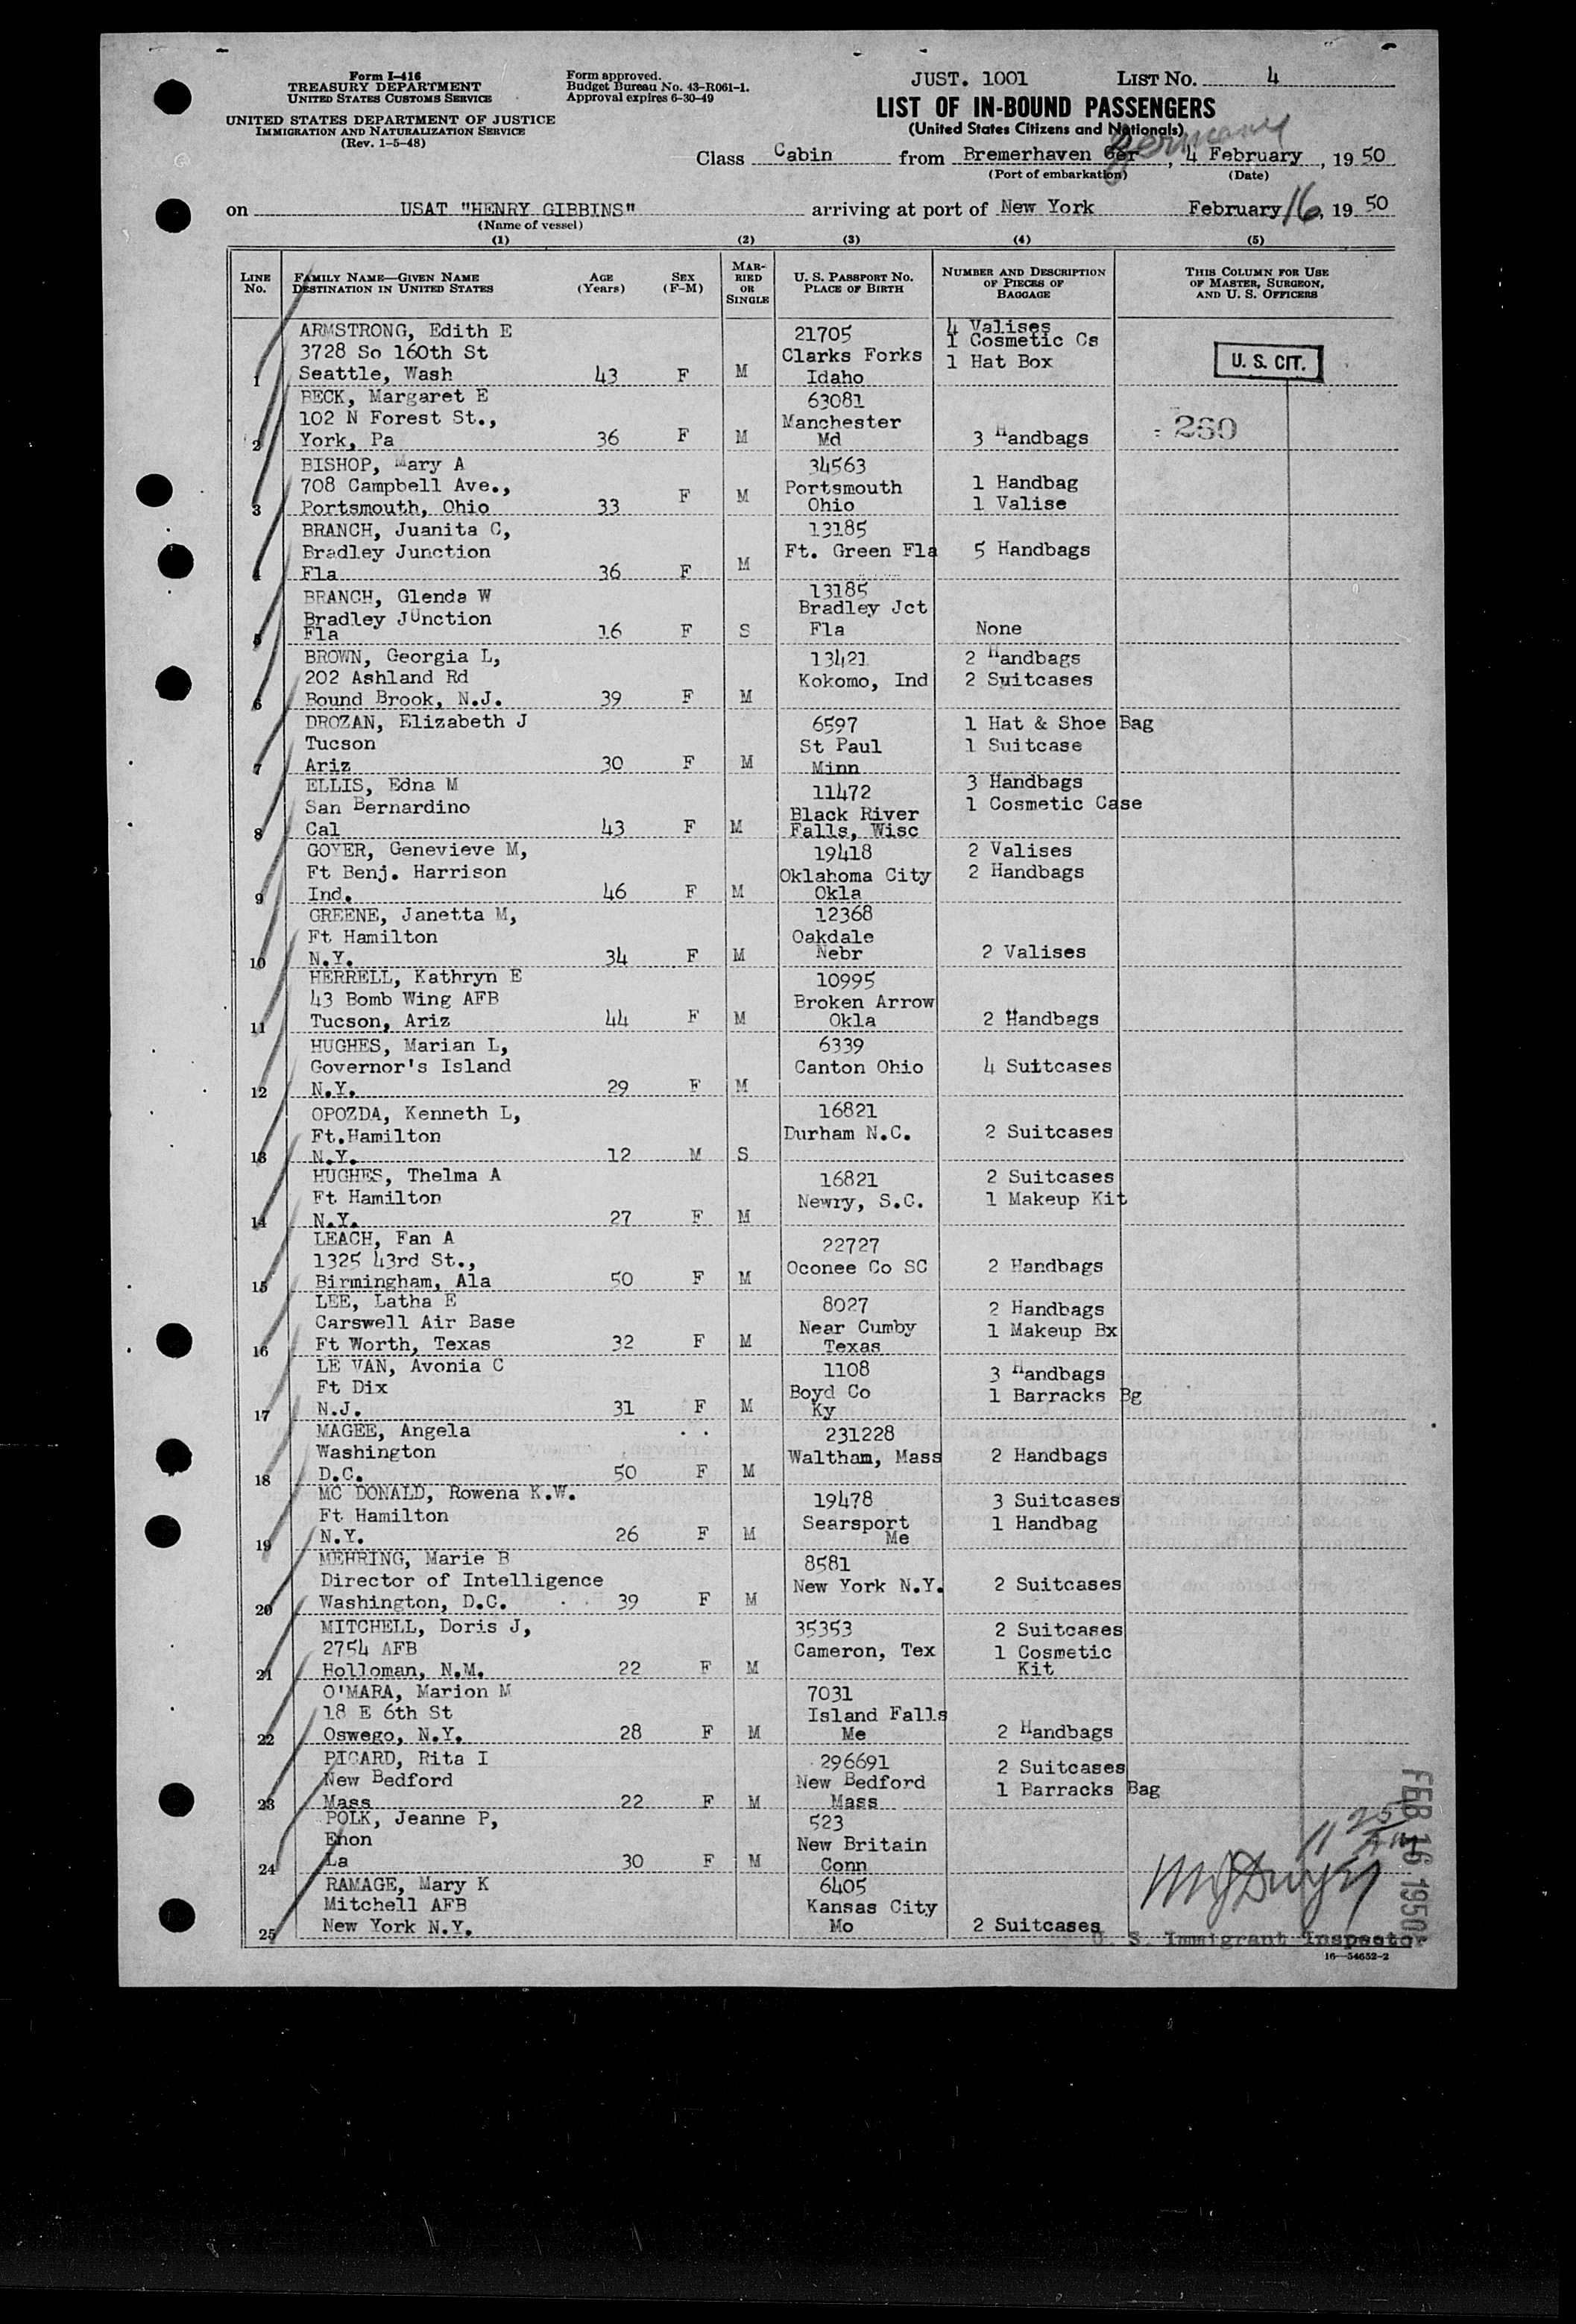 Form I-416
TREASURY DEPARTMENT
UNITED STATES CUSTOMS SERVICE
UNITED STATES DEPARTMENT OF JUSTICE
IMMIGRATION AND NATURALIZATION SERVICE
(Rev. 1-5-48)
Form approved.
Budget Bureau No. 43-R061-1.
Approval expires 6-30-49
JUST. 1001 LIST NO. 4
LIST OF IN-BOUND PASSENGERS
(United States Citizens and Nationals)
Germany
Class Cabin from Bremerhaven Ger, 4 February, 19 50
(Port of embarkation) (Date)
on USAT "HENRY GIBBINS" arriving at port of New York February 16, 19 50
(Name of vessel)
(1) (2) (3) (4) (5)
LINE NO. FAMILY NAME—GIVEN NAME DESTINATION IN UNITED STATES AGE (Years) SEX (F-M) MARRIED OR SINGLE U. S. PASSPORT NO. PLACE OF BIRTH NUMBER AND DESCRIPTION OF PIECES OF BAGGAGE THIS COLUMN FOR USE OF MASTER, SURGEON, AND U. S. OFFICERS
ARMSTRONG, Edith E 21705 4 Valises
3728 So 160th St Clarks Forks 1 Cosmetic Cs
1 Seattle, Wash 43 F M Idaho 1 Hat Box U. S. CIT.
BECK, Margaret E 63081
102 N Forest St., Manchester
2 York, Pa 36 F M Md 3 Handbags 260
BISHOP, Mary A 34563
708 Campbell Ave., Portsmouth 1 Handbag
3 Portsmouth, Ohio 33 F M Ohio 1 Valise
BRANCH, Juanita C, 13185
Bradley Junction Ft. Green Fla 5 Handbags
4 Fla 36 F M
BRANCH, Glenda W 13185
Bradley JUnction Bradley Jct
5 Fla 16 F S Fla None
BROWN, Georgia L, 13421 2 Handbags
202 Ashland Rd Kokomo, Ind 2 Suitcases
6 Bound Brook, N.J. 39 F M
DROZAN, Elizabeth J 6597 1 Hat & Shoe Bag
Tucson St Paul 1 Suitcase
7 Ariz 30 F M Minn
ELLIS, Edna M 11472 3 Handbags
San Bernardino Black River 1 Cosmetic Case
8 Cal 43 F M Falls, Wisc
GOYER, Genevieve M, 19418 2 Valises
Ft Benj. Harrison Oklahoma City 2 Handbags
9 Ind. 46 F M Okla
GREENE, Janetta M, 12368
Ft Hamilton Oakdale
10 N.Y. 34 F M Nebr 2 Valises
HERRELL, Kathryn E 10995
43 Bomb Wing AFB Broken Arrow
11 Tucson, Ariz 44 F M Okla 2 Handbags
HUGHES, Marian L, 6339
Governor's Island Canton Ohio 4 Suitcases
12 N.Y. 29 F M
OPOZDA, Kenneth L, 16821
Ft.Hamilton Durham N.C. 2 Suitcases
13 N.Y. 12 M S
HUGHES, Thelma A 16821 2 Suitcases
Ft Hamilton Newry, S.C. 1 Makeup Kit
14 N.Y. 27 F M
LEACH, Fan A 22727
1325 43rd St., Oconee Co SC 2 Handbags
15 Birmingham, Ala 50 F M
LEE, Latha E 8027 2 Handbags
Carswell Air Base Near Cumby 1 Makeup Bx
16 Ft Worth, Texas 32 F M Texas
LE VAN, Avonia C 1108 3 Handbags
Ft Dix Boyd Co 1 Barracks Bg
17 N.J. 31 F M Ky
MAGEE, Angela 231228
Washington Waltham, Mass 2 Handbags
18 D.C. 50 F M
MC DONALD, Rowena K.W. 19478 3 Suitcases
Ft Hamilton Searsport 1 Handbag
19 N.Y. 26 F M Me
MEHRING, Marie B 8581
Director of Intelligence New York N.Y. 2 Suitcases
20 Washington, D.C. 39 F M
MITCHELL, Doris J, 35353 2 Suitcases
2754 AFB Cameron, Tex 1 Cosmetic
21 Holloman, N.M. 22 F M Kit
O'MARA, Marion M 7031
18 E 6th St Island Falls
22 Oswego, N.Y. 28 F M Me 2 Handbags
PICARD, Rita I 296691 2 Suitcases
New Bedford New Bedford 1 Barracks Bag
23 Mass 22 F M Mass
POLK, Jeanne P, 523
Enon New Britain
24 La 30 F M Conn
RAMAGE, Mary K 6405
Mitchell AFB Kansas City
25 New York N.Y. Mo 2 Suitcases
FEB 16 1950
U. S. Immigrant Inspector
16—54652-2